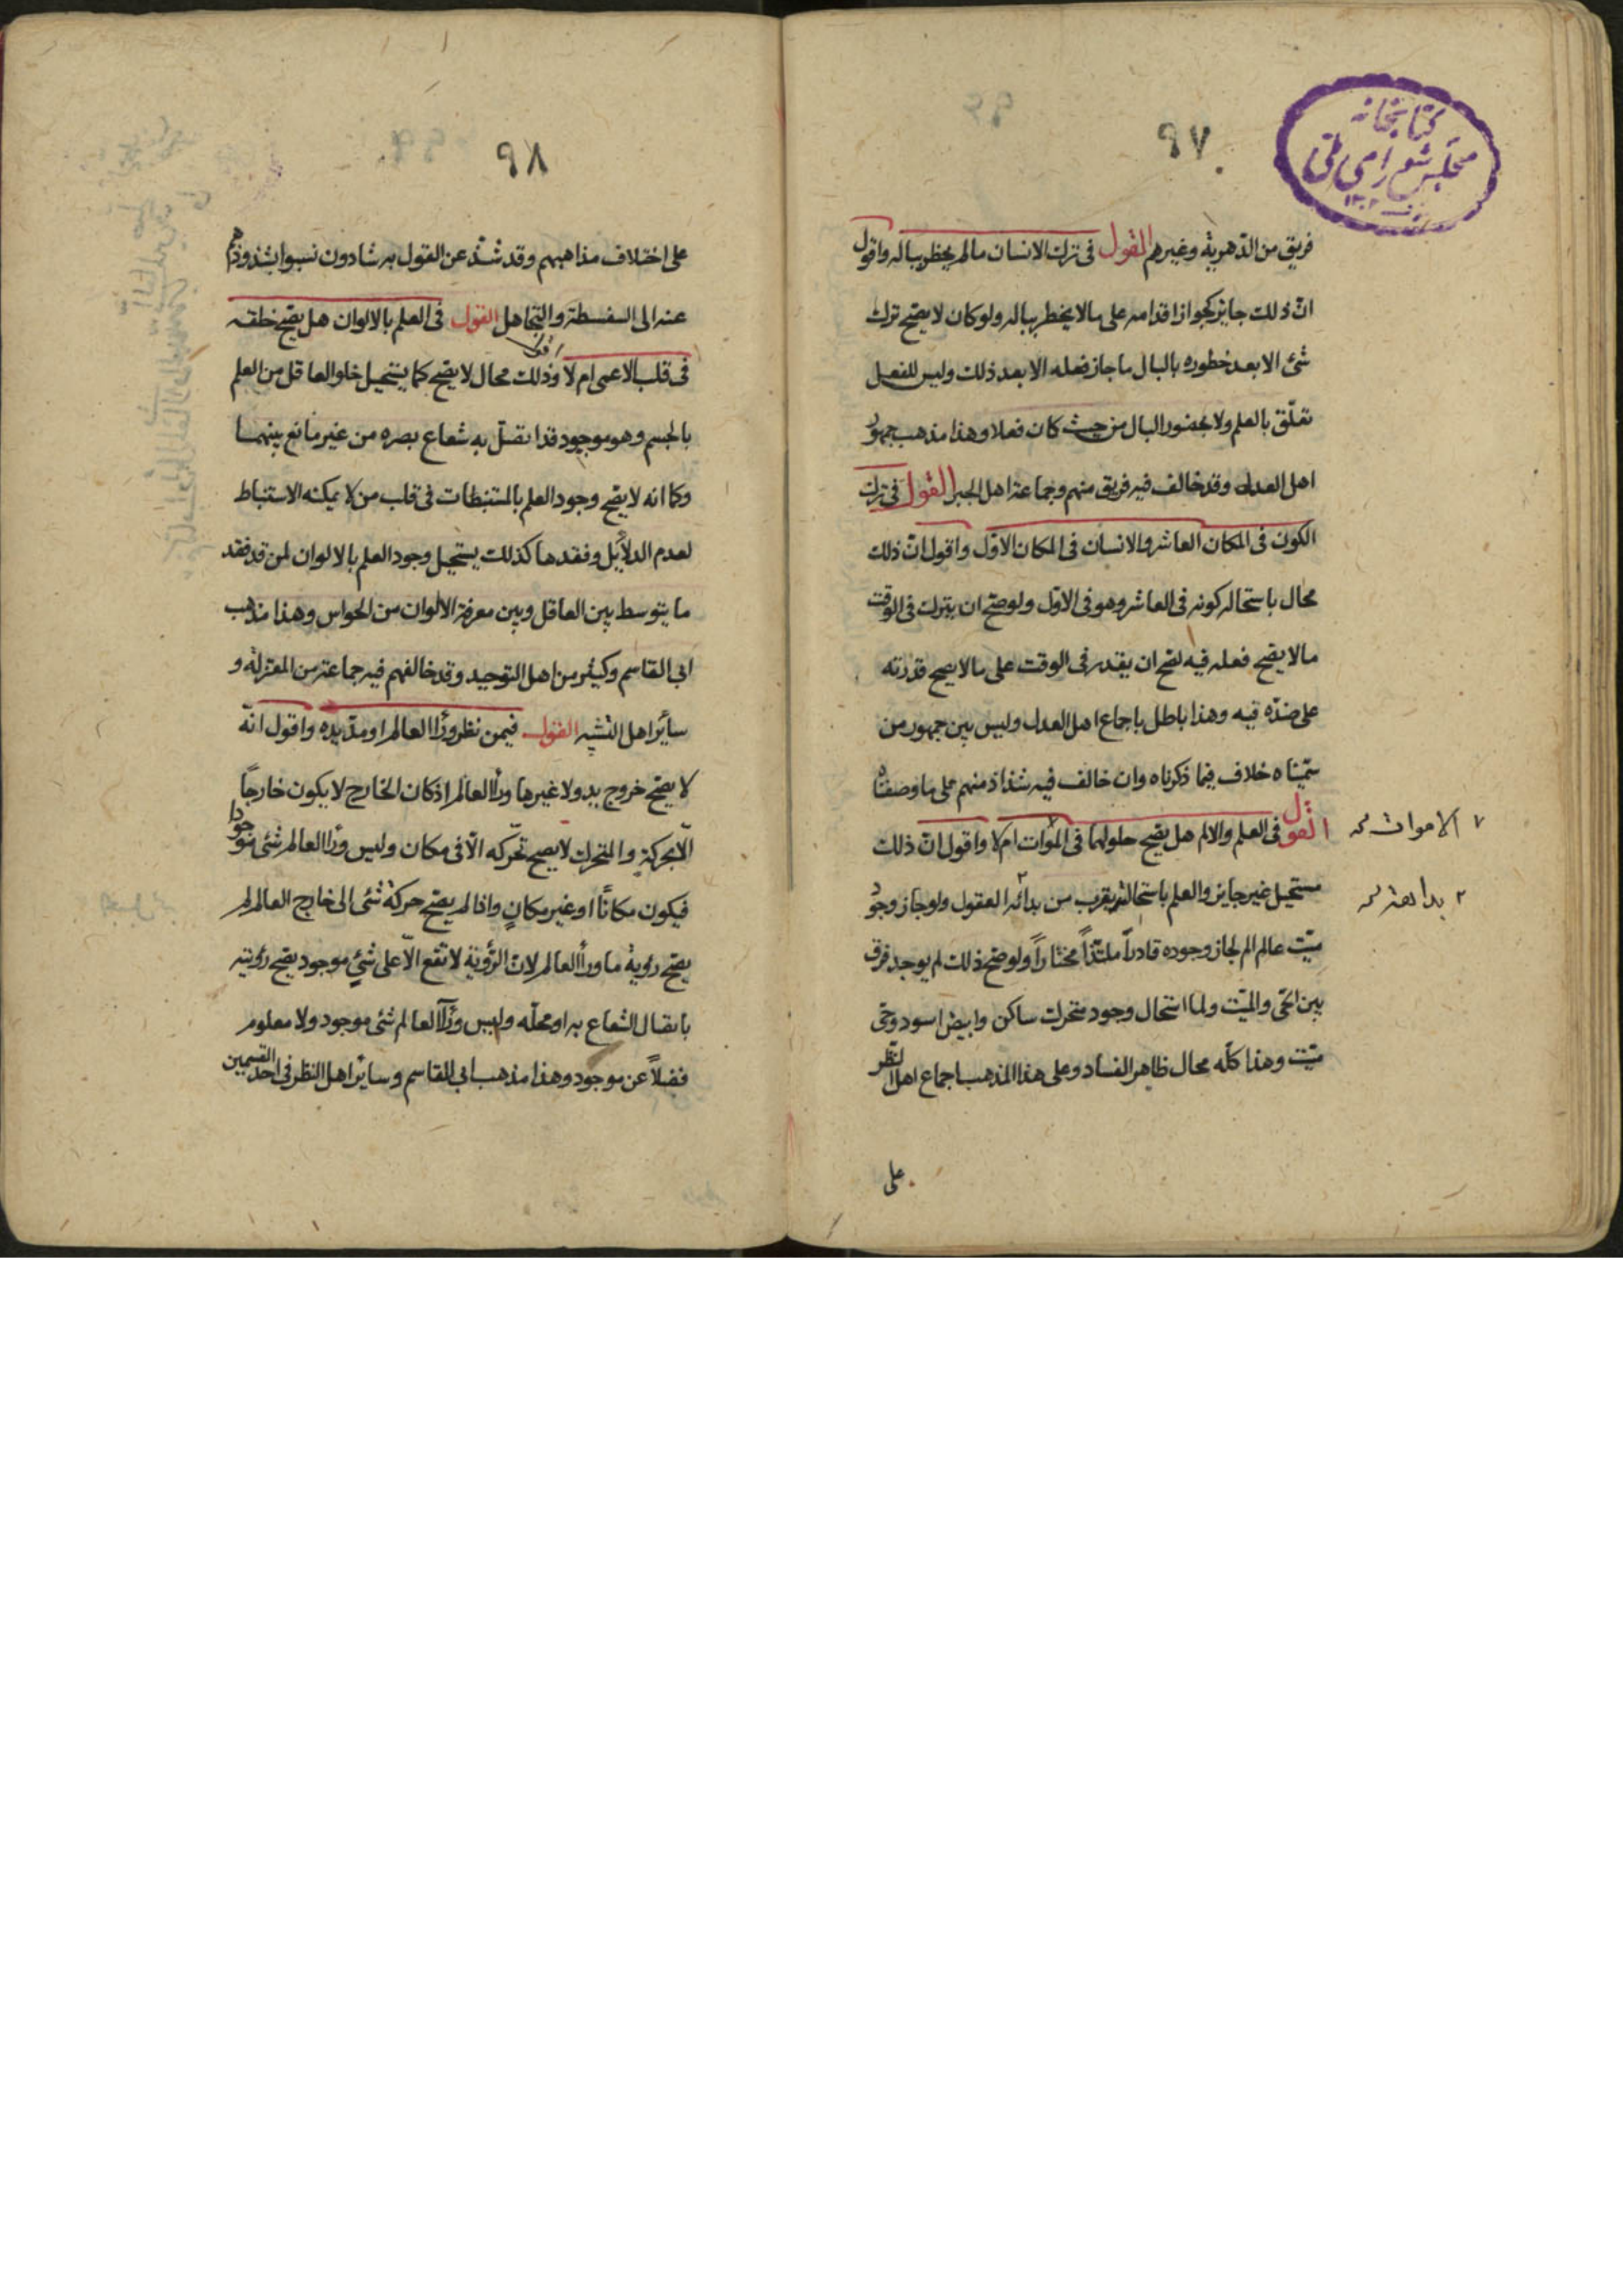 ٩٧
كتابخانه
مجلس شورای ملی
فريق من الدّهرية وغيرهم القول فى ترك الانسان مالم يخطر بباله واقول
انّ ذلك جايز كجواز اقدامه على مالا يخطر بباله ولو كان لا يصّح ترك
شئ الا بعد خطوره بالبال ما جاز فعله الا بعد ذلك وليس للفعل
تعلّق بالعلم ولا بحضور البال من حيث كان فعلا وهذا مذهب جمهور
اهل العدل وقد خالف فيه فريق منهم وجماعة اهل الجبر القول فى ترك
الكون فى المكان العاشر والانسان فى المكان الاوّل واقول انّ ذلك
محال باستحاله كونه فى العاشر وهو فى الاوّل ولو صّح ان يترك فى الوقت
مالا يصّح فعله فيه لصّح ان يقدر فى الوقت على مالا يصح قدرته
على ضدّه فيه وهذا باطل باجماع اهل العدل وليس بين جمهور من
سمّيناه خلاف فيما ذكرناه وان خالف فيه شذاذ منهم على ما وصفناه
القول فى العلم والالم هل يصّح حلولهما فى الموات ام لا واقول انّ ذلك
٧ الاموات
مستحيل غير جايز والعلم باستحالته يقرب من بدائه العقول ولو جاز وجود
٢ بداهته
ميّت عالم الم لجاز وجوده قادراً ملتذّاً مختاراً ولو صّح ذلك لم يوجد فرق
بين الحّى والميّت ولما استحال وجود متحرك ساكن وابيض اسود وحّى
ميّت وهذا كلّه محال ظاهر الفساد وعلى هذا المذهب اجماع اهل النظر
على
٩٨
على اختلاف مذاهبهم وقد شذّ عن القول به شاذون نسبوا بشذوذهم
عنه الى السفسطة والتجاهل القول فى العلم بالالوان هل يصّح خلقه
فى قلب الاعمى ام لا اقول وذلك محال لا يصّح كما يستحيل خلو العاقل من العلم
بالجسم وهو موجود قد اتصل به شعاع بصره من غير مانع بينهما
وكما انه لا يصّح وجود العلم بالمستنبطات فى قلب من لا يمكنه الاستنباط
لعدم الدلائل وفقدها كذلك يستحيل وجود العلم بالالوان لمن قد فقد
ما يتوسط بين العاقل وبين معرفة الالوان من الحواس وهذا مذهب
ابى القاسم وكثير من اهل التوحيد وقد خالفهم فيه جماعة من المعتزلة و
سائر اهل التشبيه القول فيمن نظر ورأا العالم او مدّ يده واقول انّه
لا يصّح خروج يد ولا غيرها ورأا العالم اذ كان الخارج لا يكون خارجاً
الّا بحركةٍ والمتحرك لا يصح تحرّكه الّا فى مكان وليس ورأا العالم شئ موجودا
فيكون مكاناً او غير مكانٍ واذا لم يصّح حركة شئ الى خارج العالم لم
يصّح رؤية ما ورأا العالم لانّ الرّؤية لا تقع الّا على شئٍ موجود يصّح رؤيته
باتصال الشعاع به او محلّه وليس ورأا العالم شئ موجود ولا معلوم
فضلاً عن موجود وهذا مذهب ابى القاسم وسائر اهل النظر فى احد القسمين